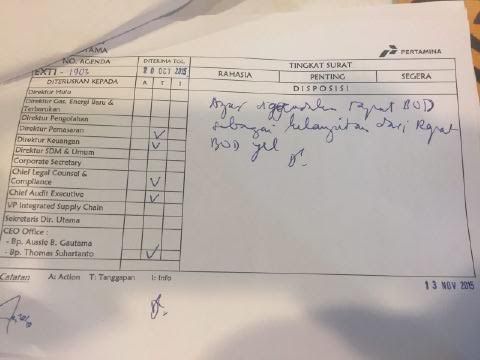 UTAMA
PERTAMINA
NO. AGENDA
DITERIMA TGL.
TINGKAT SURAT
EXTI - 1903
20 OCT 2015
RAHASIA
PENTING
SEGERA
DITERUSKAN KEPADA
A
T
I
DISPOSISI
Direktur Hulu
Direktur Gas, Energi Baru &
Terbarukan
Direktur Pengolahan
Direktur Pemasaran
Direktur Keuangan
Direktur SDM & Umum
Corporate Secretary
Chief Legal Counsel &
Compliance
Chief Audit Executive
VP Integrated Supply Chain
Sekretaris Dir. Utama
CEO Office :
- Bp. Aussie B. Gautama
- Bp. Thomas Suhartanto
Agar rapat BOD
sebagai kelanjutan dari Rapat
BOD yel
Catatan A: Action T: Tanggapan I: Info
13 NOV 2015